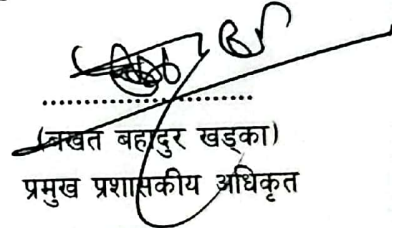 ....................................
(बखत बहादुर खड्का)
प्रमुख प्रशासकीय अधिकृत